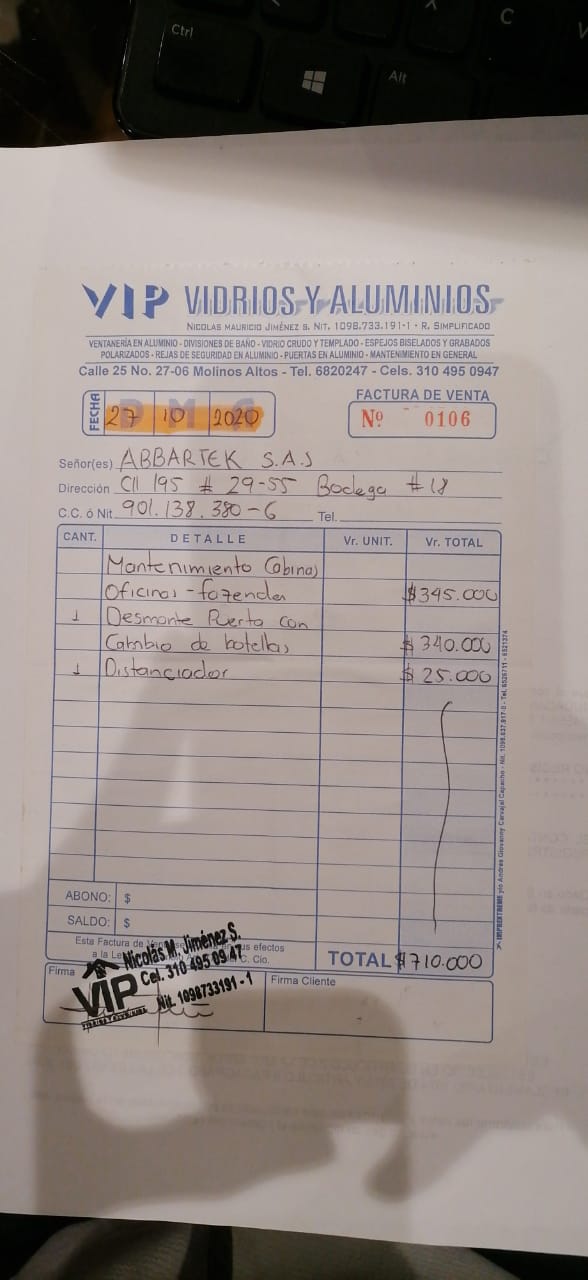 Ctrl
Alt
C
VIP VIDRIOS Y ALUMINIOS
NICOLAS MAURICIO JIMÉNEZ S. NIT. 1098.733.191-1 - R. SIMPLIFICADO
VENTANERÍA EN ALUMINIO - DIVISIONES DE BAÑO - VIDRIO CRUDO Y TEMPLADO - ESPEJOS BISELADOS Y GRABADOS
POLARIZADOS - REJAS DE SEGURIDAD EN ALUMINIO - PUERTAS EN ALUMINIO - MANTENIMIENTO EN GENERAL
Calle 25 No. 27-06 Molinos Altos - Tel. 6820247 - Cels. 310 495 0947
FECHA D M A 27 10 2020
FACTURA DE VENTA
Nº 0106
Señor(es) ABBARTEK S.A.S
Dirección Cll 195 # 29-55 Bodega #18
C.C. ó Nit. 901.138.380-6 Tel.
CANT. DETALLE Vr. UNIT. Vr. TOTAL
Mantenimiento Cabinas
Oficinas - fazenda $345.000
1 Desmonte Puerta con
Cambio de botellas $ 340.000
1 Distanciador $ 25.000
ABONO: $
SALDO: $
Este Factura de efectos
a la C. Cio.
TOTAL $710.000
Firma
Firma Cliente
Nicolás M. Jiménez S.
Cel. 310 495 09 47
VIP Nit. 1098733191-1